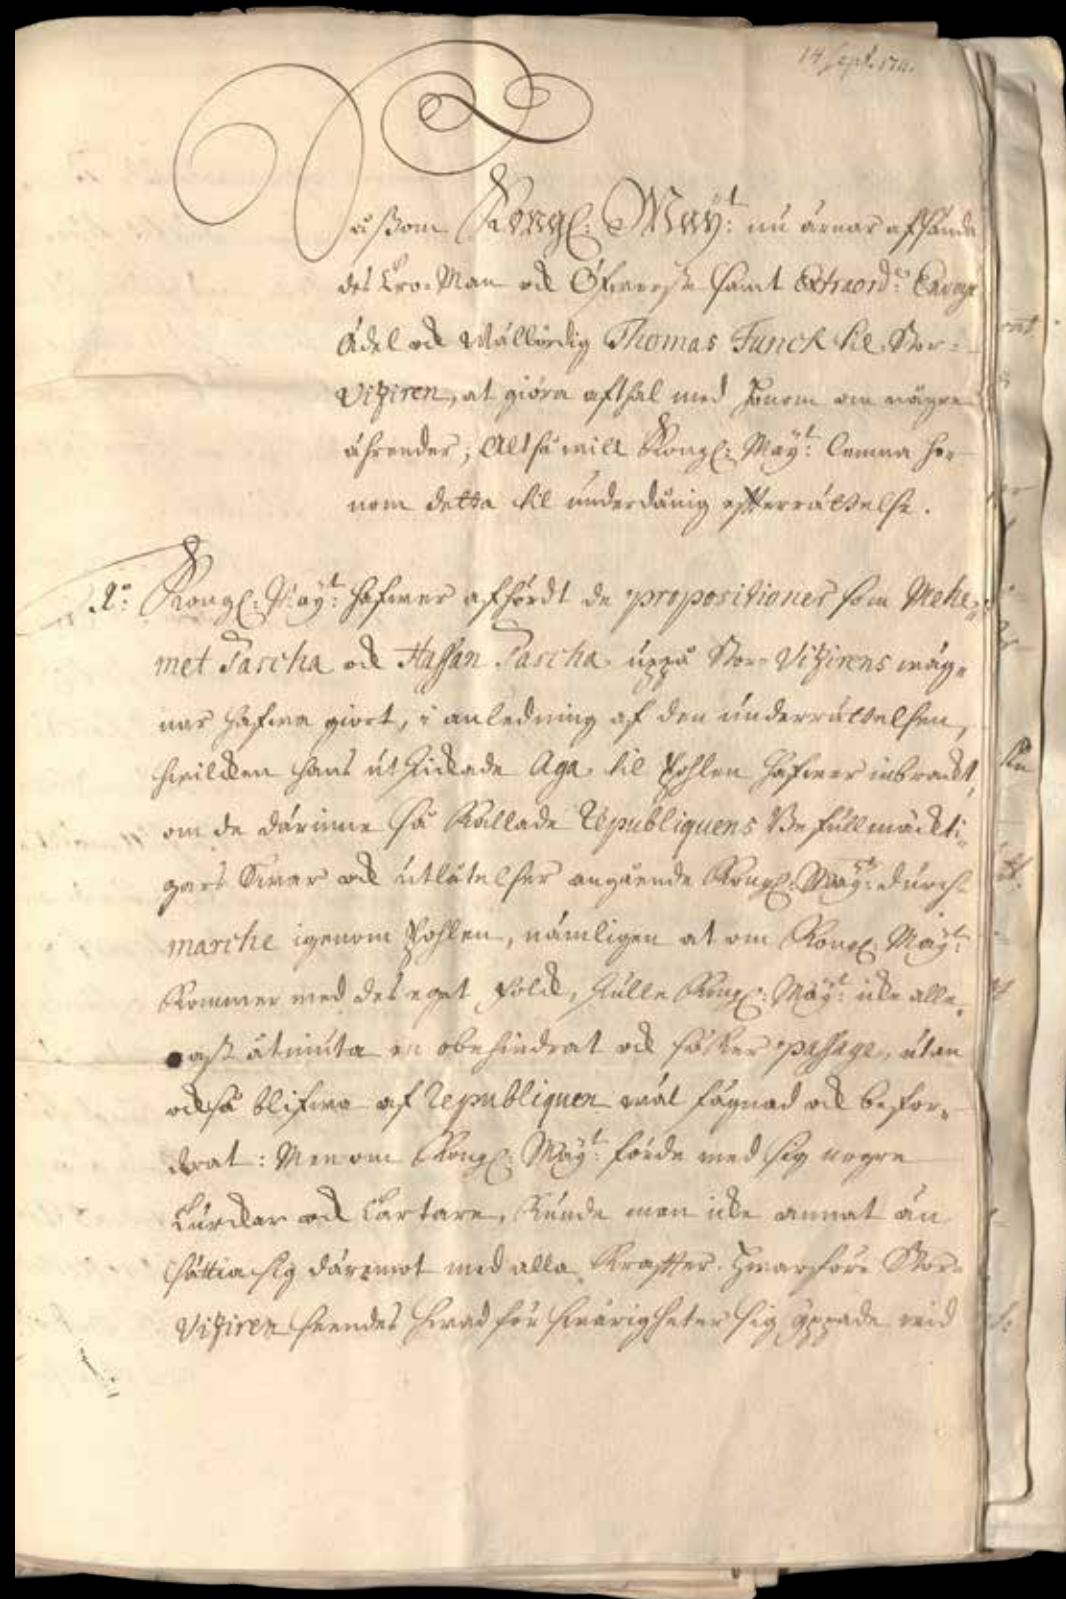 14 Sept. 1711.
Såssom Kongl: Maÿt: nu ärnar afsända
des Tro-Man och Öfwerste samt Extraord:
Ädel och Wälbördig Thomas Funck til Stor-
Viziren, at giöra afthal med honom om någre
ährender; Altså will Kongl: Maÿt: lemna ho-
nom detta til underdånig efterrättelse.
1:o Kongl: Maÿt: hafwer afhördt de propositioner som Mehe-
met Pascha och Hassan Pascha uppå Stor-Vizirens wäg-
nar hafwa giort, i anledning af den underrättelsen,
hwilcken hans utskickade Aga til Pohlen hafwer inbracht,
om de därinne så kallade Republiquens Befullmächti-
gars swar och utlåtelser angående Kongl: Maÿt: durch
marche igenom Pohlen, nämligen at om Kongl: Maÿt:
kommer med des eget folck, skulle Kongl: Maÿt: icke alle-
nast åtniuta en obehindrat och säker passage, utan
också blifwa af Republiquen wäl fägnad och befor-
drat: Men om Kongl: Maÿt: förde med sig nogre
Turckar och Tartare, kunde man icke annat än
sättia sig däremot med alla kraffter. Hwarföre Stor-
Viziren seendes hwad för swårigheter sig yppade wid